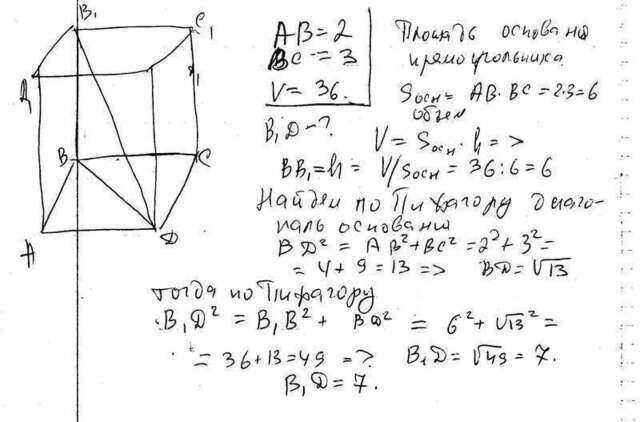 B₁
C₁
A₁
B
C
A
D
AB = 2
BC = 3
V = 36.
B₁D - ?
Площадь основания
прямоугольника
Sосн = AB · BC = 2·3 = 6
объем
V = Sосн · h = >
BB₁ = h = V/Sосн = 36 : 6 = 6
Найдем по Пифагору диаго-
наль основания
BD² = AB² + BC² = 2² + 3² =
= 4 + 9 = 13 => BD = √13
тогда по Пифагору
B₁D² = B₁B² + BD² = 6² + √13² =
= 36 + 13 = 49 = ? B₁D = √49 = 7.
B₁D = 7.